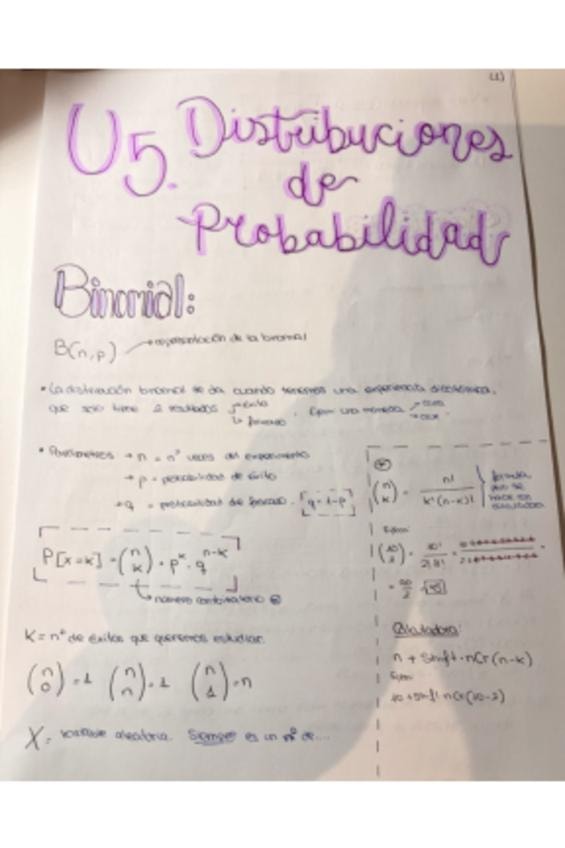 (1)
U5. Distribuciones
de
Probabilidad
Binomial:
B(n,p) → representación de la binomial
• La distribución binomial se da cuando tenemos una experiencia dicotómica,
que solo tiene 2 resultados → éxito
↳ fracaso . Ejem: una moneda → cara
→ cruz .
• Parámetros → n = nº veces del experimento
→ p = probabilidad de éxito
→ q = probabilidad de fracaso . [q = 1-p]
P[x=k] = (n k) · p^k · q^n-k
↳ número combinatorio ⊛
K = nº de éxitos que queremos estudiar.
(n 0) = 1 (n n) = 1 (n 1) = n
X = variable aleatoria. Siempre es un nº de...
⊛
(n k) = n! / k!(n-k)! } fórmula
Ejem:
(10 2) = 10! / 2!8! =
= 90/2 = 45
Calculadora:
n + Shift + nCr (n-k)
Ejem:
10 + Shift nCr (10-2)